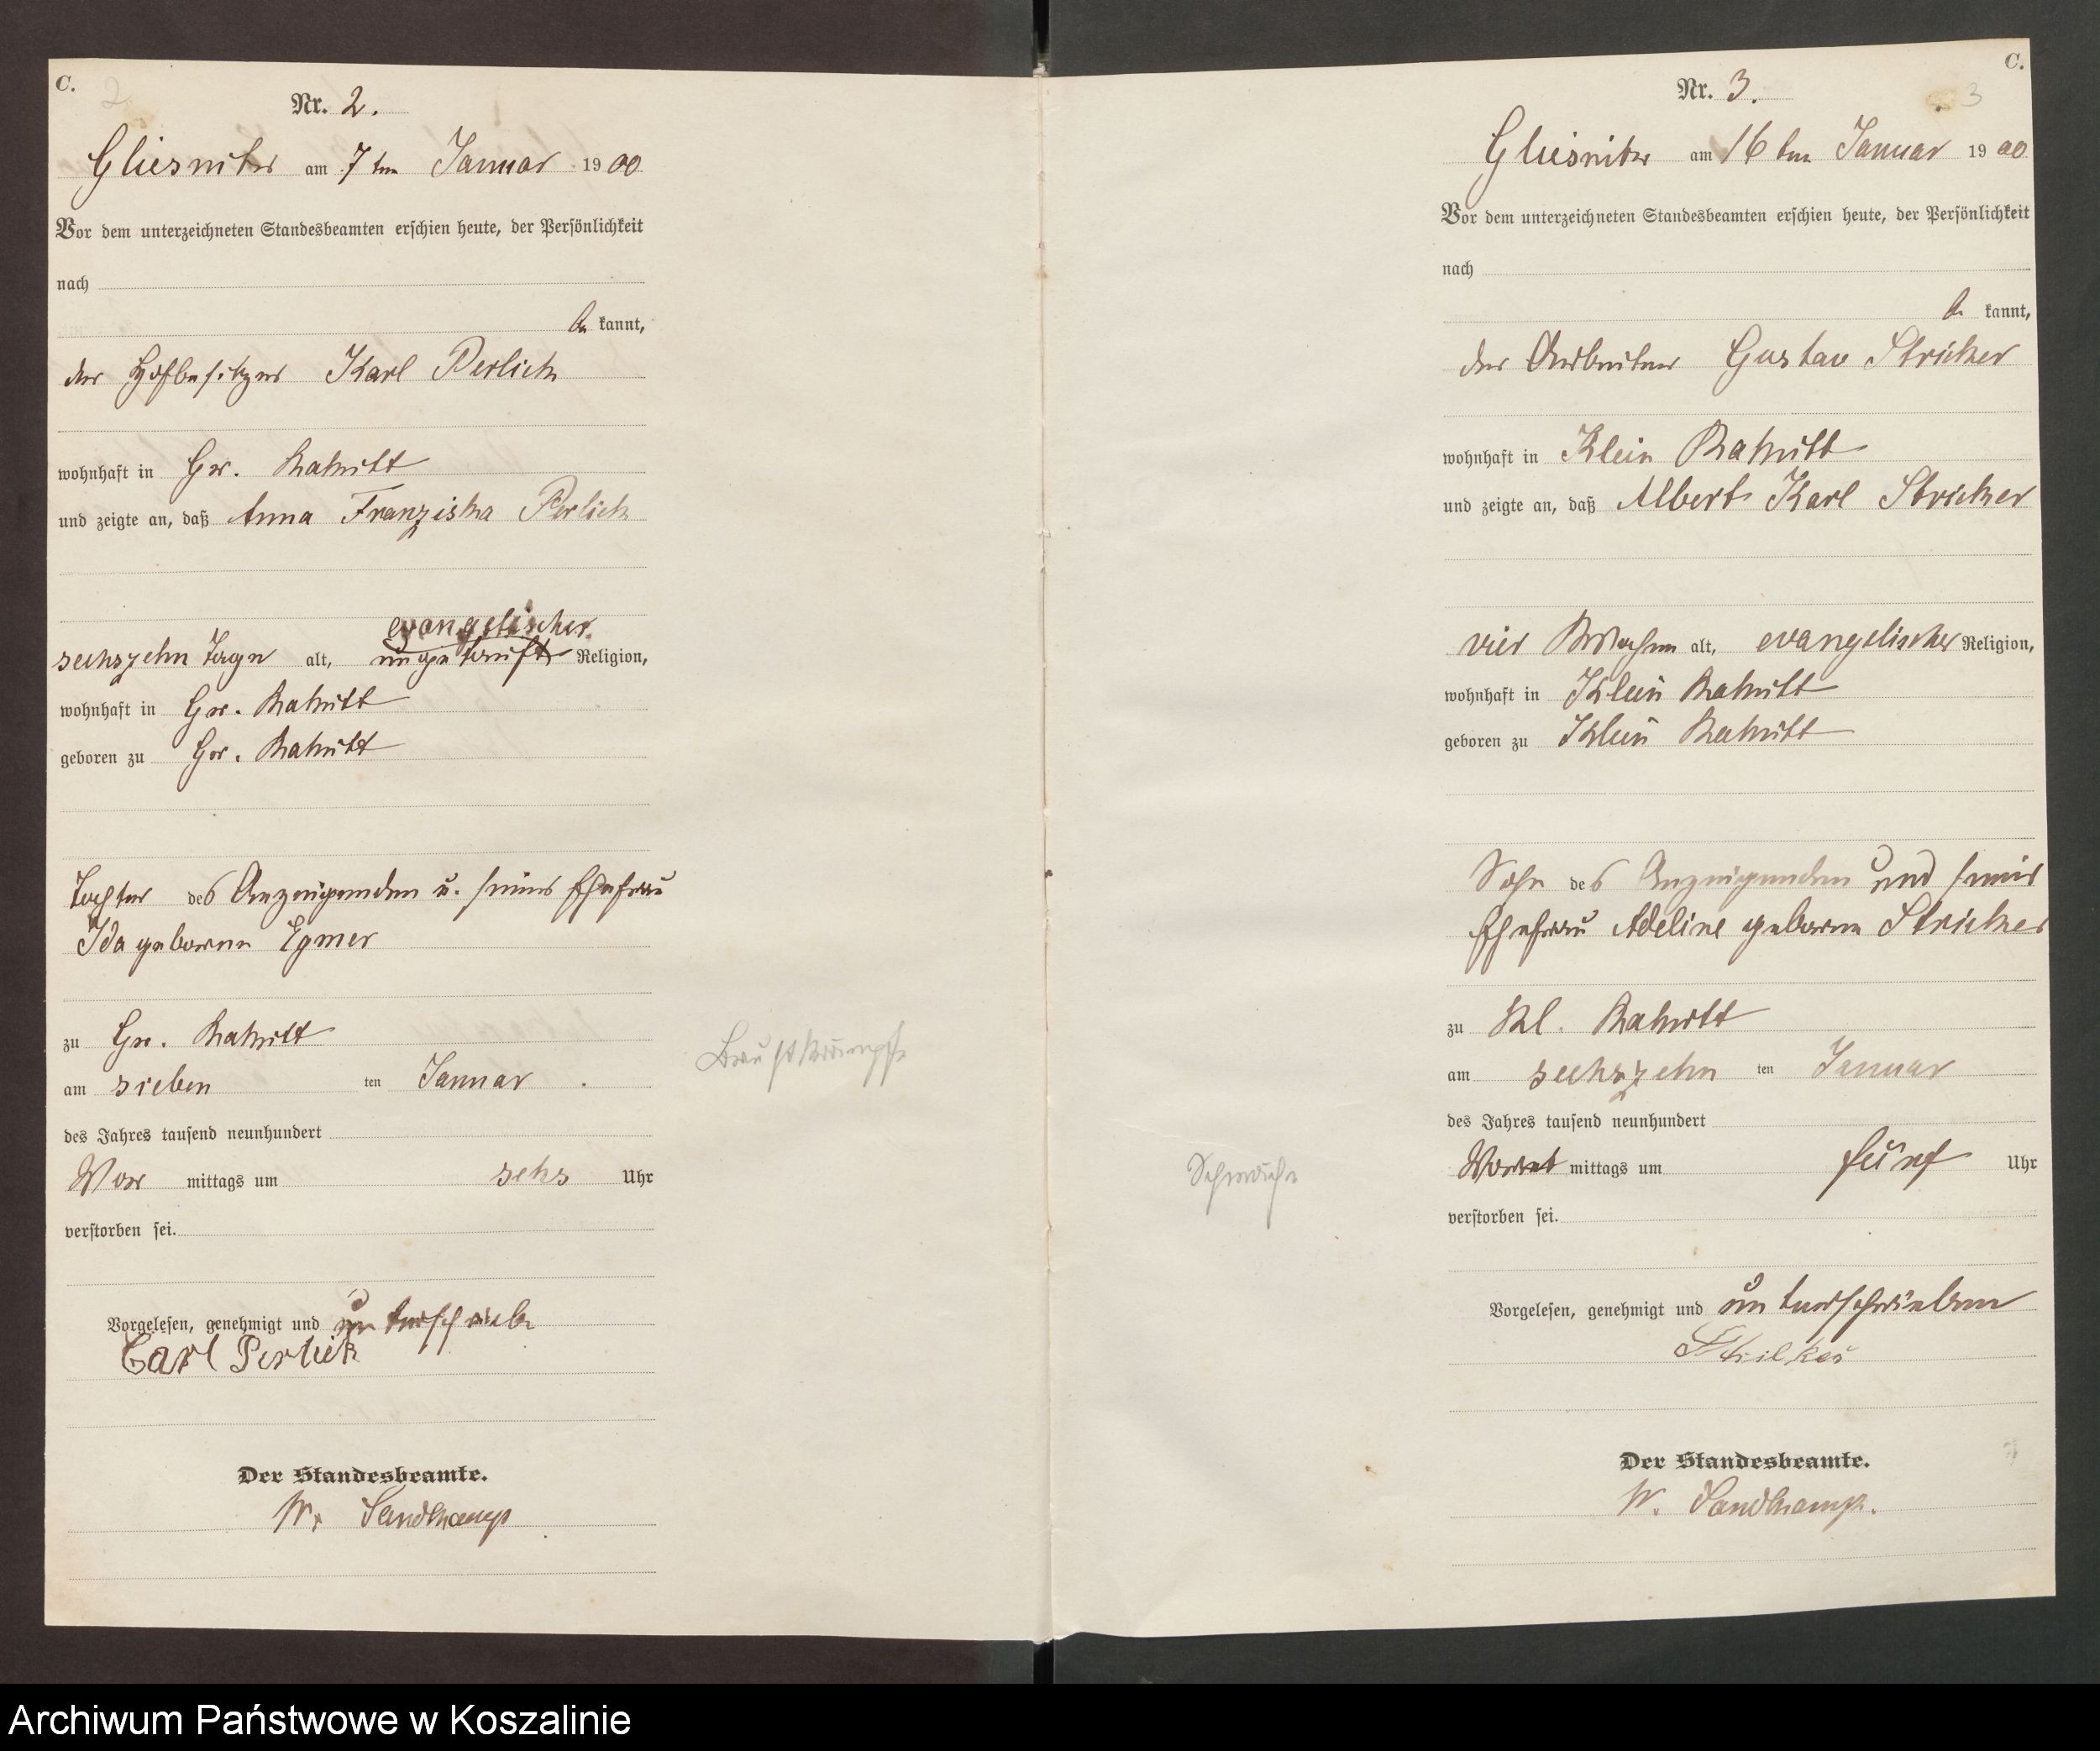 C.
2
Nr. 2.
Gliesnitz am 7ten Januar 1900
Vor dem unterzeichneten Standesbeamten erschien heute, der Persönlichkeit
nach
be kannt,
der Hofbesitzer Karl Perlick
wohnhaft in Gr. Rakitt
und zeigte an, daß Anna Franziska Perlick
evangelischer
sechszehn Tage alt, ungetauft Religion,
wohnhaft in Gr. Rakitt
geboren zu Gr. Rakitt
Tochter des Anzeigenden u. seiner Ehefrau
Ida geborne
zu Gr. Rakitt
am sieben ten Januar
des Jahres tausend neunhundert
Vor mittags um sehs Uhr
verstorben sei.
Vorgelesen, genehmigt und unterschrieben
Carl Perlick
Der Standesbeamte.
W. Sandkamp
Brustkrämpfe
C.
3
Nr. 3.
Gliesnitz am 16ten Januar 1900
Vor dem unterzeichneten Standesbeamten erschien heute, der Persönlichkeit
nach
be kannt,
der Arbeiter Gustav Stricker
wohnhaft in Klein Rakitt
und zeigte an, daß Albert Karl Stricker
vier Wochen alt, evangelischer Religion,
wohnhaft in Klein Rakitt
geboren zu Klein Rakitt
Sohn des Anzeigenden und seiner
Ehefrau Adeline geborne Stricker
zu Kl. Rakitt
am sechszehn ten Januar
des Jahres tausend neunhundert
mittags um fünf Uhr
verstorben sei.
Vorgelesen, genehmigt und unterschrieben
Der Standesbeamte.
W. Sandkamp.
Schwäche
Archiwum Państwowe w Koszalinie